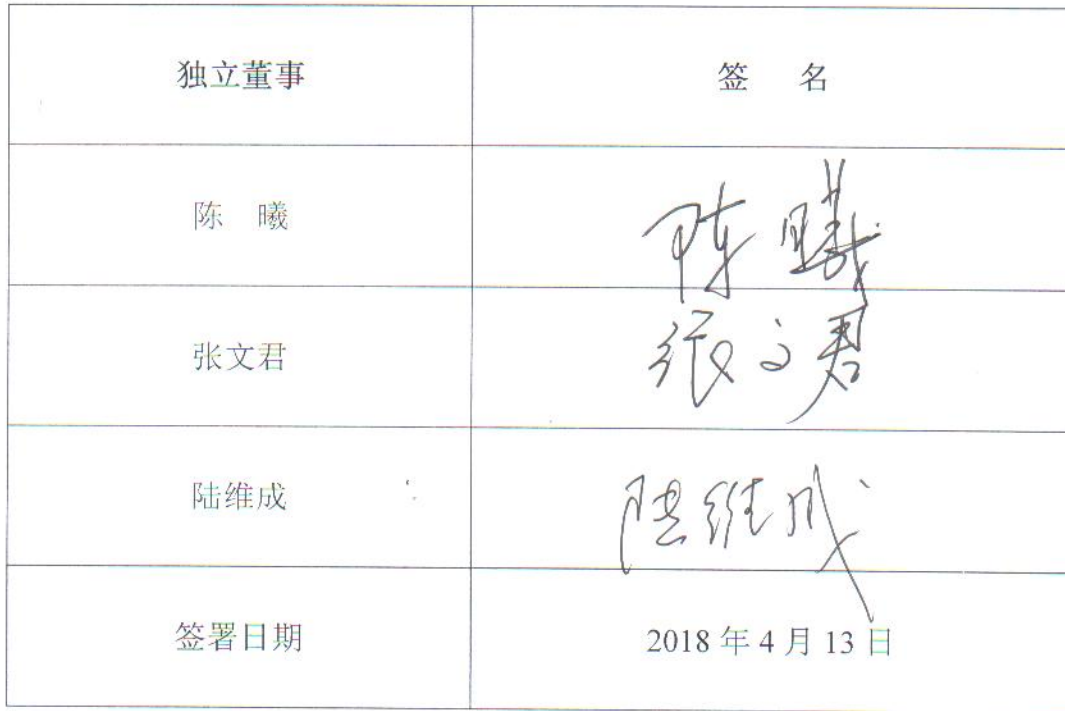 独立董事 签 名
陈 曦 陈曦
张文君 张文君
陆维成 陆维成
签署日期 2018 年 4 月 13 日